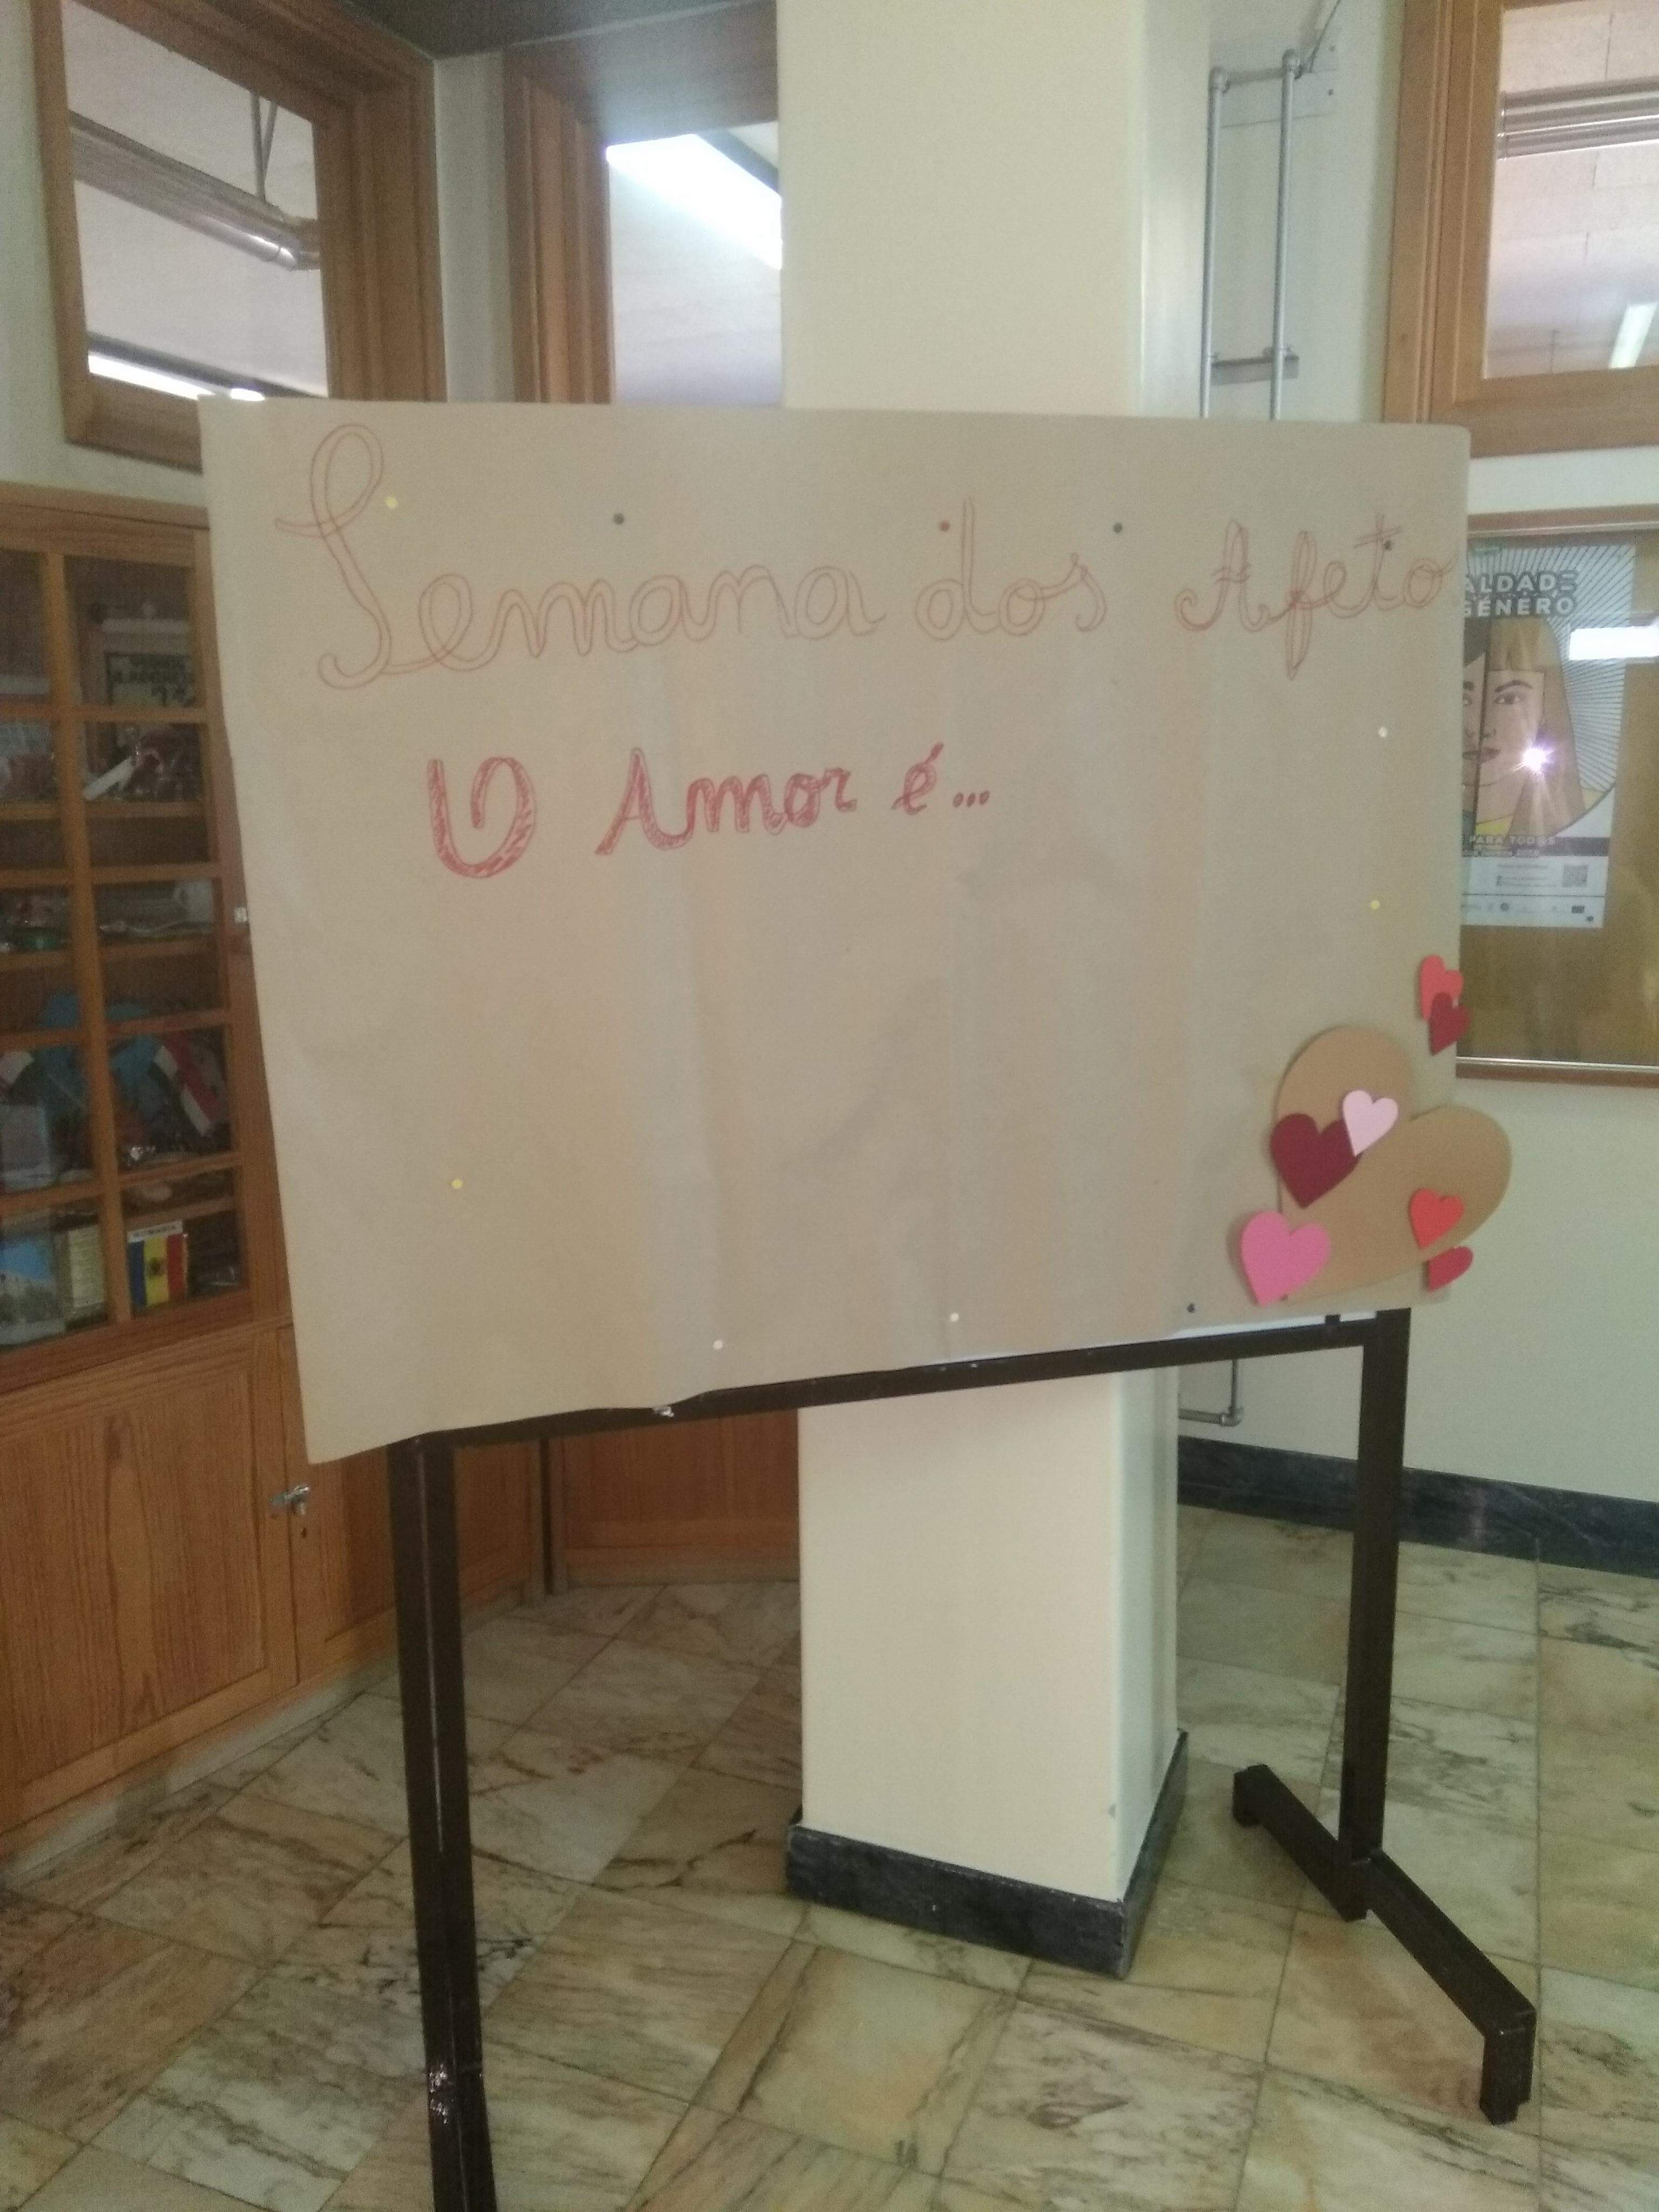 Semana dos Afeto
O Amor é...
ALDADE
GÉNERO
PARA TODOS